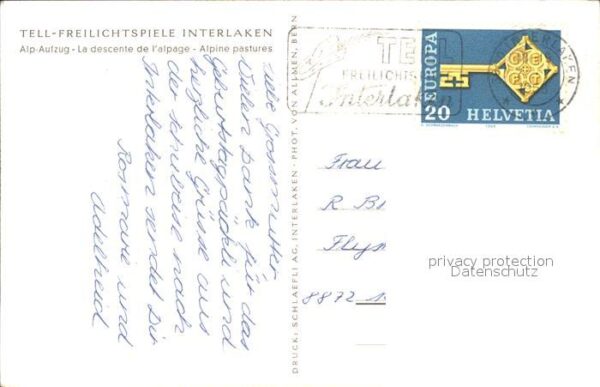 TELL-FREILICHTSPIELE INTERLAKEN
Alp-Aufzug - La descente de l'alpage - Alpine pastures
Liebe Grossmutter
Vielen Dank für das
Geburtstagspäckli und
herzliche Grüsse aus
der Schulreise nach
Interlaken sendet Dir
Rosmarie und
Adelheid
DRUCK: SCHLAEFLI AG, INTERLAKEN - PHOT. VON ALLMEN, BERN
TELL
FREILICHTS
Interlaken
INTERLAKEN
EUROPA
20 HELVETIA
1968
Frau
R B
8872
privacy protection
Datenschutz